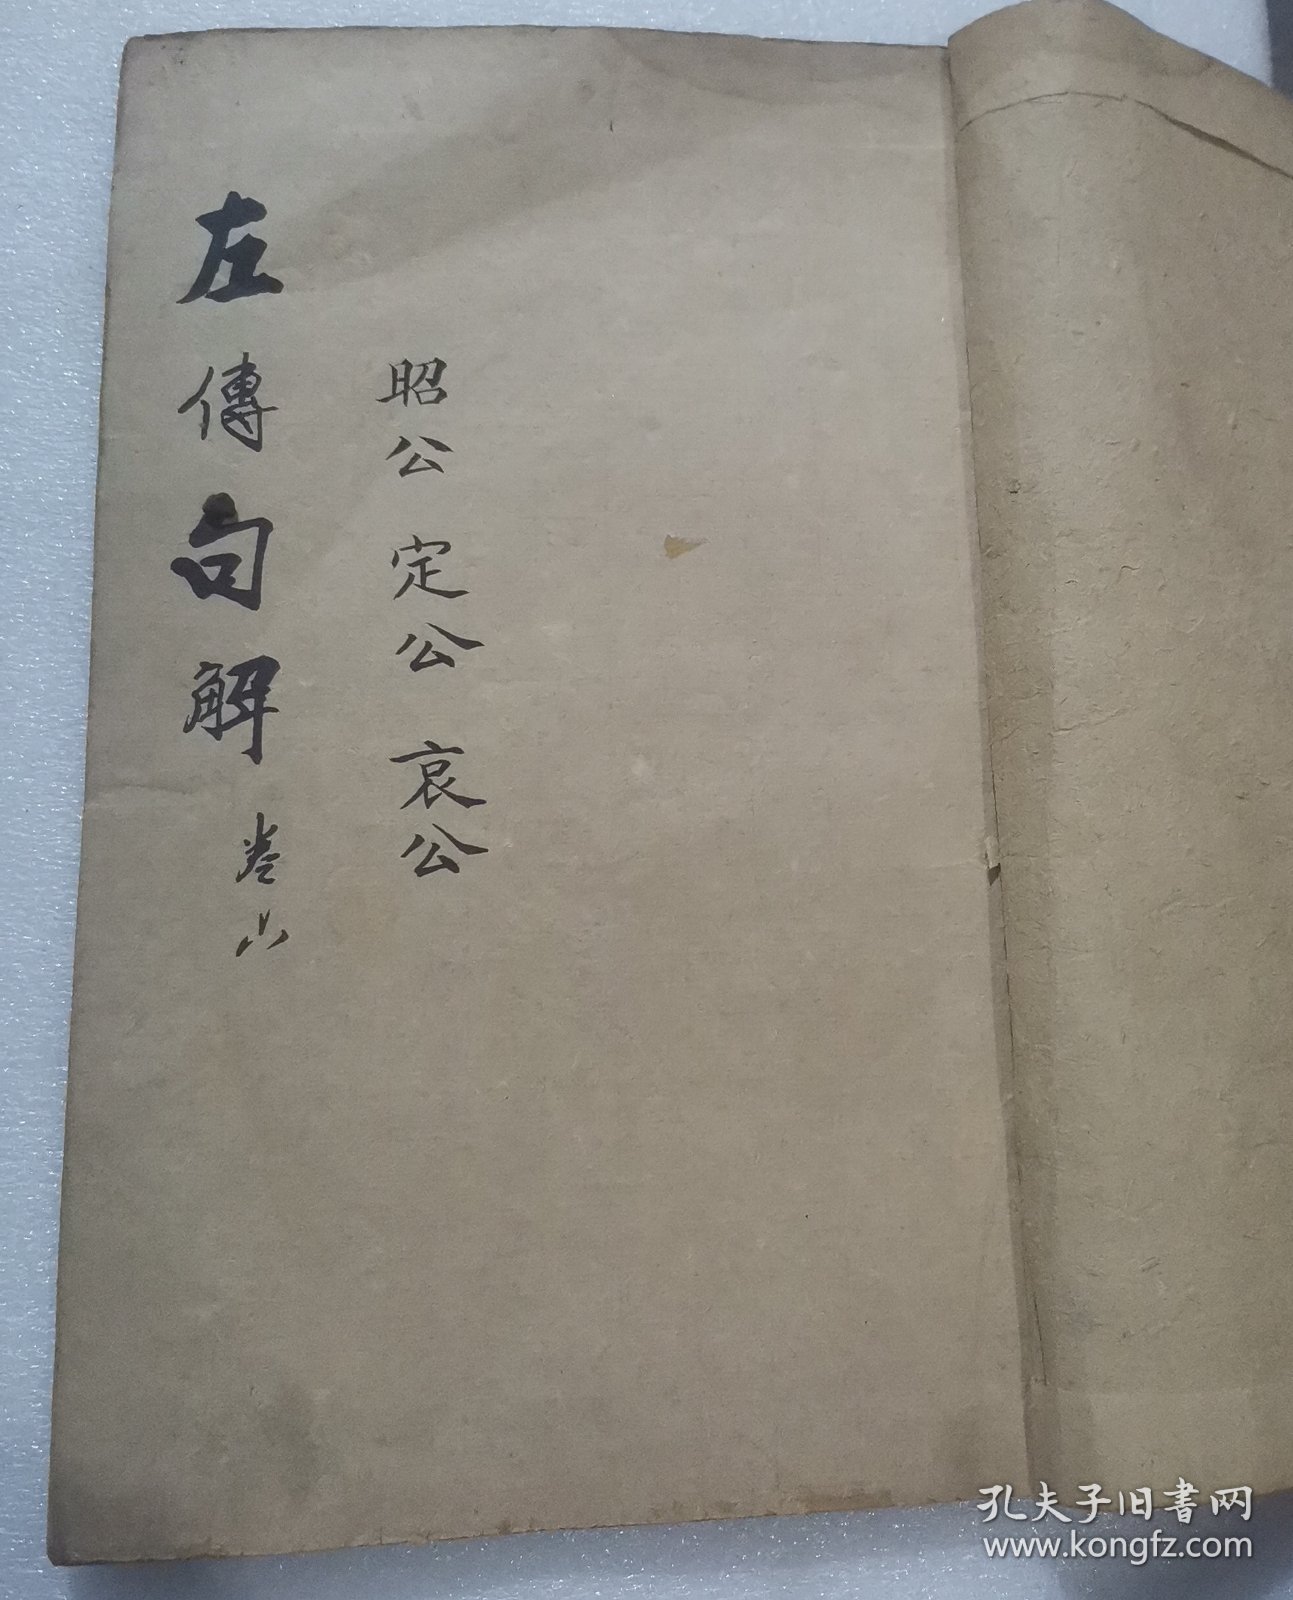 左傳句解 卷六
昭公 定公 哀公
孔夫子旧書网
www.kongfz.com